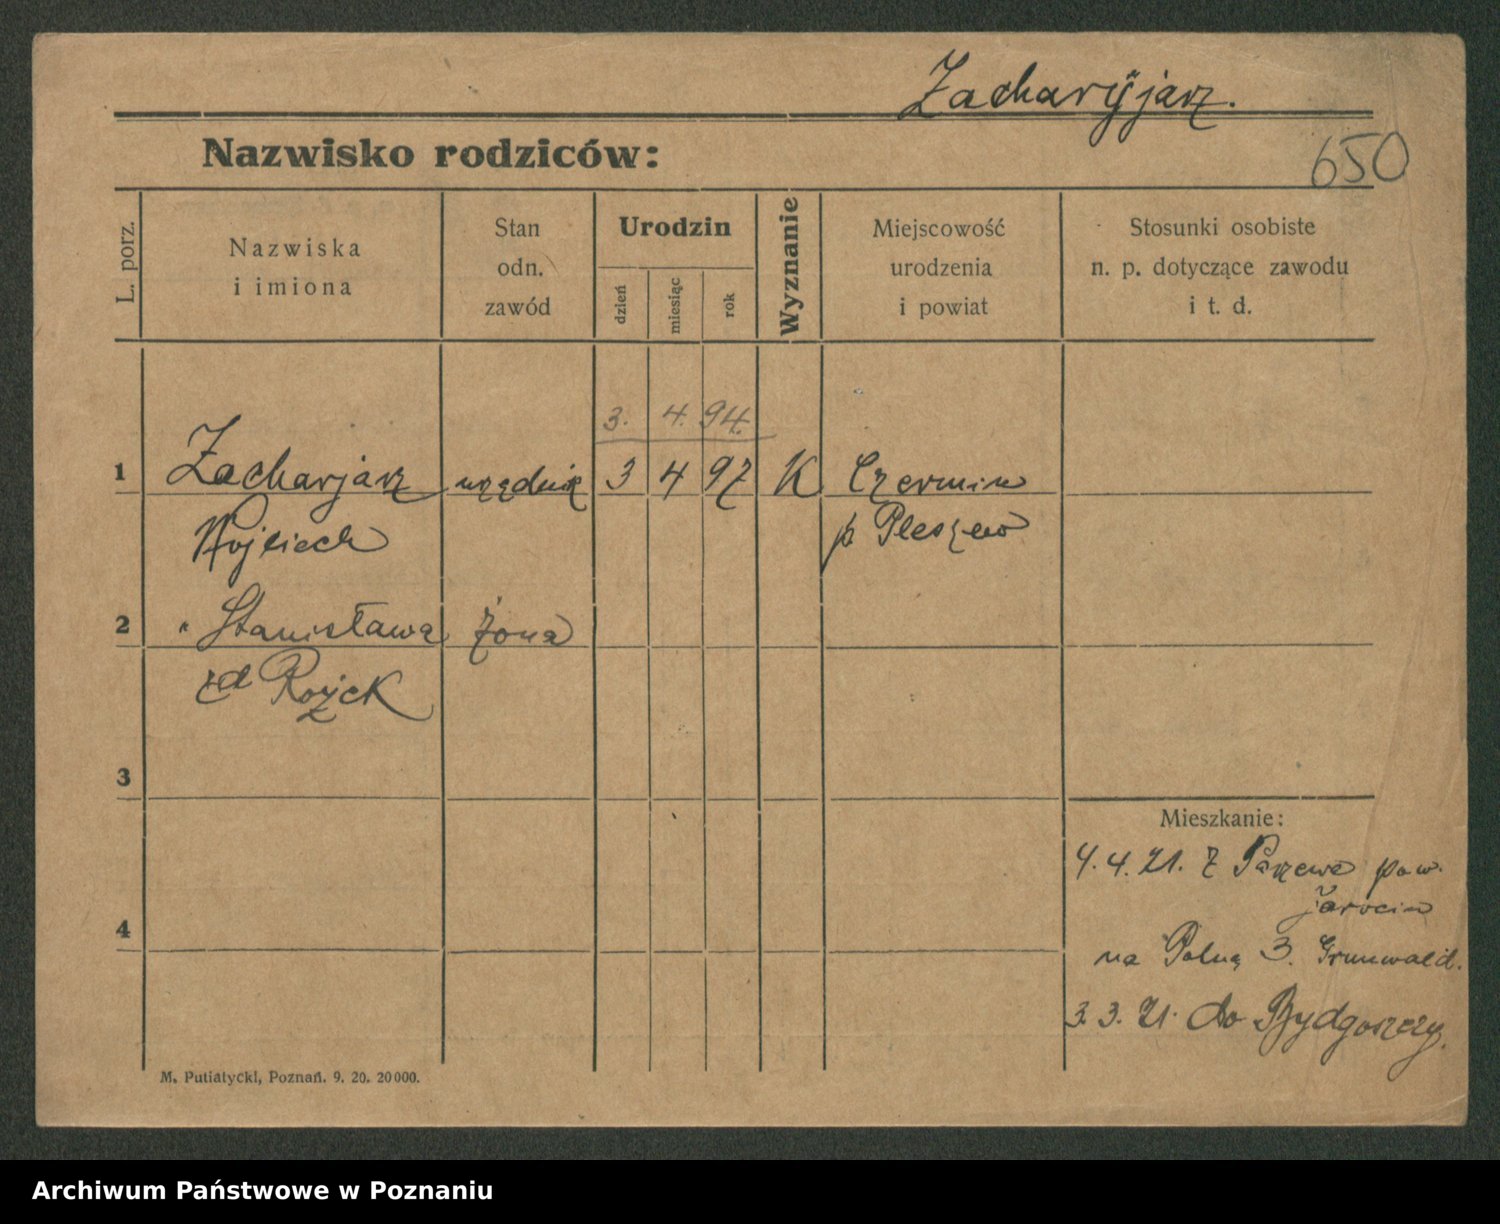 Zacharyjarz.
650
Nazwisko rodziców:
L. porz.
Nazwiska
i imiona
Stan
odn.
zawód
Urodzin
dzień
miesiąc
rok
Wyznanie
Miejscowość
urodzenia
i powiat
Stosunki osobiste
n. p. dotyczące zawodu
i t. d.
3. 4. 94.
1 Zacharjarz urzędnik 3 4 97 K Czermin
Wojciech p Pleszew
2 " Stanisława żona
zd Rożek
3
Mieszkanie:
4. 4. 21. z pow.
Jarocin
4
na Polną 3. Grunwald.
3. 3. 21. do Bydgoszczy.
M. Putiatycki, Poznań. 9. 20. 20000.
Archiwum Państwowe w Poznaniu